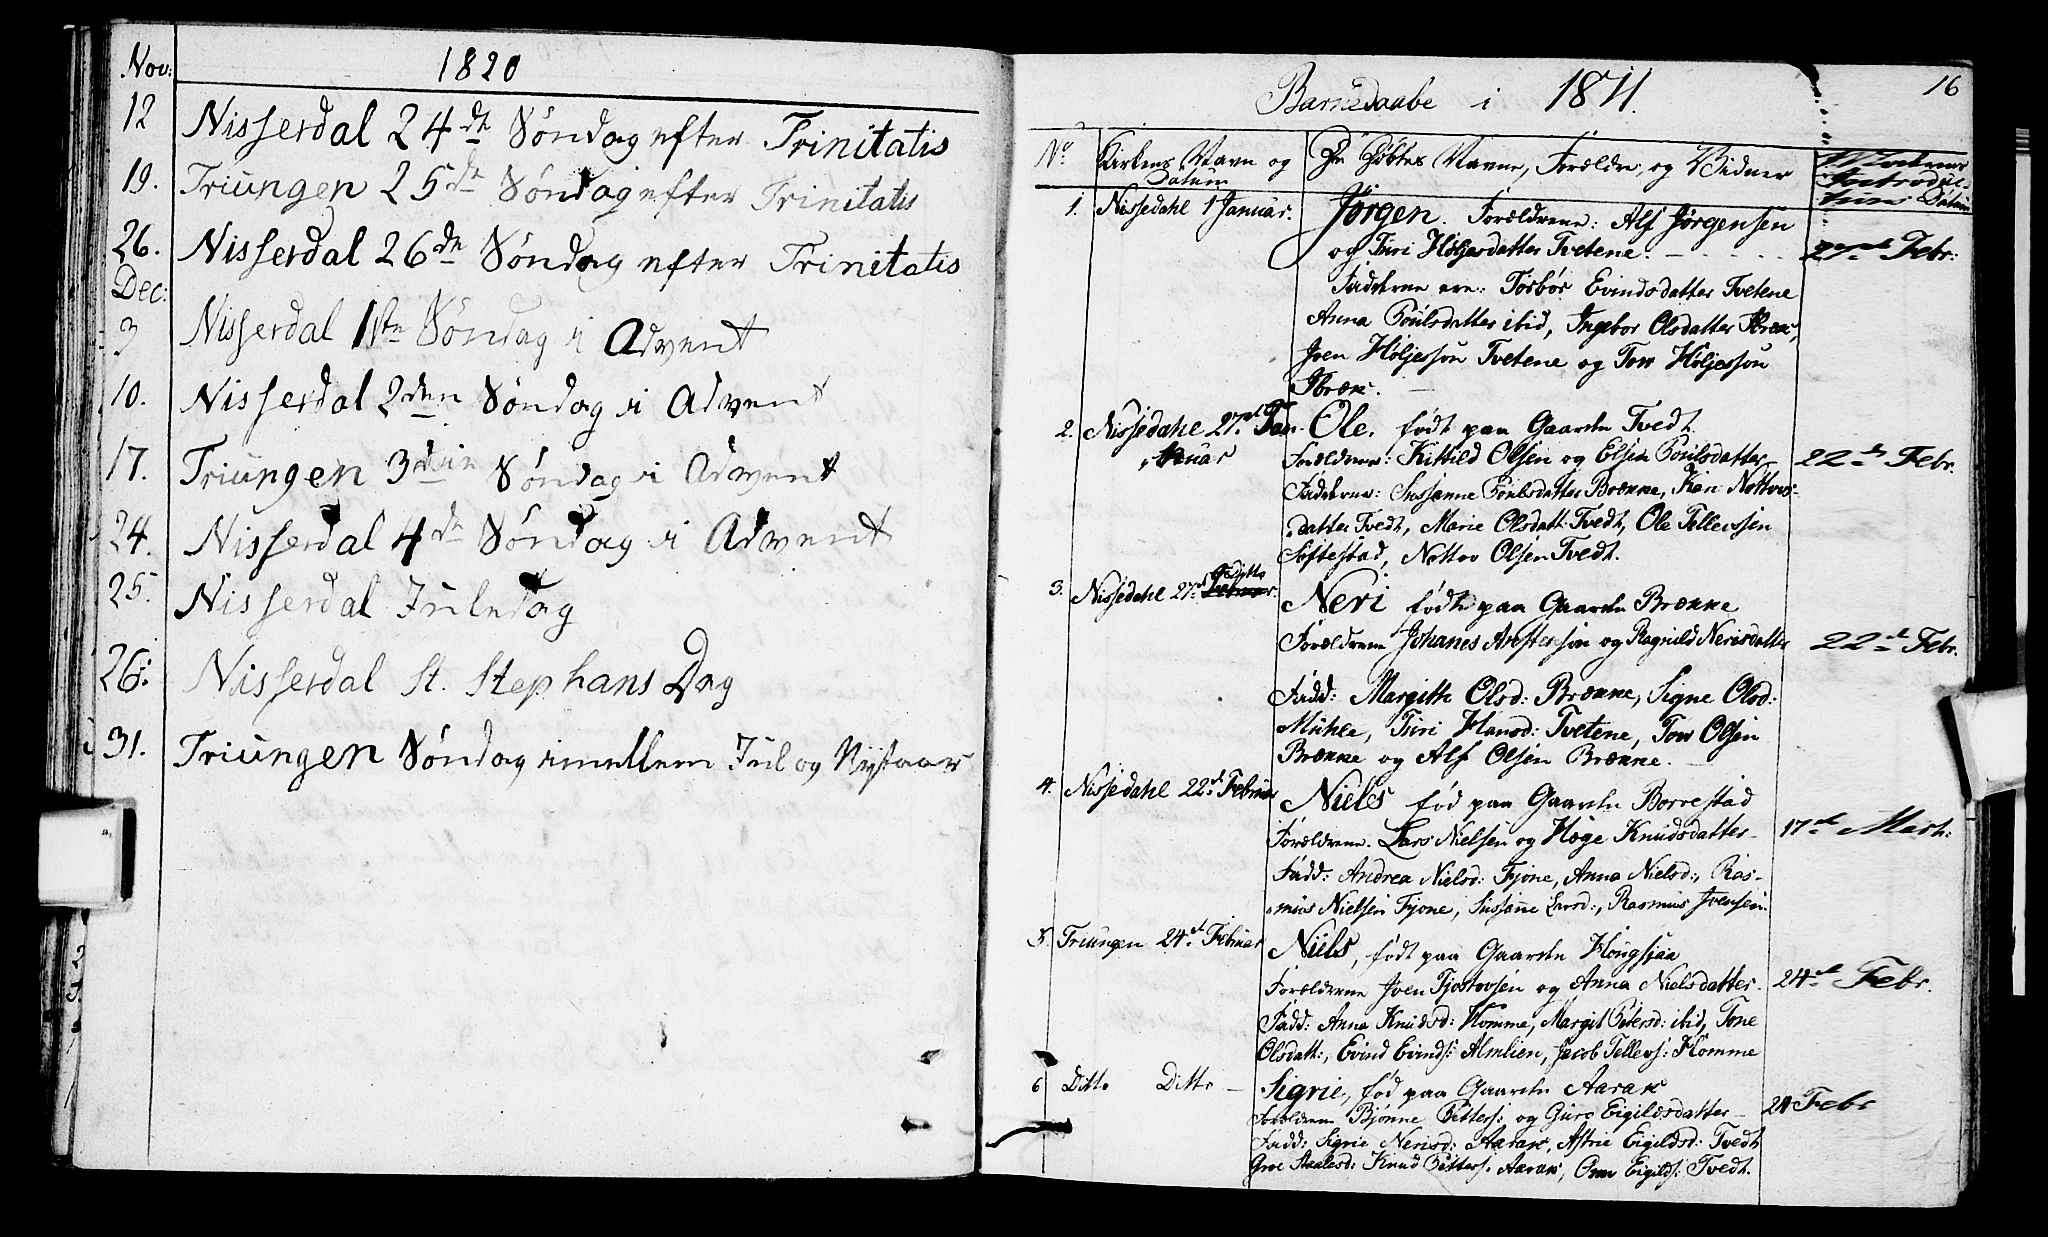 Nov: 1820
12 Nisserdal 24de Søndag efter Trinitatis
19. Triungen 25de Søndag efter Trinitatis
26. Nisserdal 26de Søndag efter Trinitatis
Dec:
3 Nisserdal 1ste Søndag i Advent
10. Nisserdal 2den Søndag i Advent
17. Triungen 3die Søndag i Advent
24. Nisserdal 4de Søndag i Advent
25. Nisserdal Juledag
26. Nisserdal St. Stephans Dag
31. Triungen Søndag imellem Jul og Nystaar
16
Barnedaabe i 1811.
No Kirkens Navn og Datum
De Døbtes Navne, Forældre, og Vidner
Introduc-
tions Datum
1. Nissedahl 1 Januar. Jørgen. Forældrene: Alf Jørgensen
og Turi Høljesdatter Tvetene. 27de Febr:
Fadderne ere: Torbør Evindsdatter Tvetene
Anna Poulsdatter ibid, Ingebor Olsdatter
Joen Høljessøn Tvetene og Tow Høljessøn
2. Nissedahl 27de Jan-
nuar
Ole. født paa Gaarden Tvedt.
Forældrene: Kittild Olsen og Elsen Poulsdatter 22de Febr.
Fadderne: Susanne Poulsdatter Brænne, Kari Nottovs-
datter Tvedt, Marie Olsdatt: Tvedt, Ole Tellevssen
Søftestad, Nottov Olsen Tvedt.
3. Nissedahl 27de Ditto Neri født paa Gaarden Brænne
Forældrene Johanes Anstensøn og Ragnild Nerisdatter 22de Febr.
Fadd: Margith Olsd: Brænne, Signe Olsd:
Muhle, Turi Hansd: Tvetene, Tow Olsen
Brænne og Alf Olsen Brænne.
4. Nissedahl 22de Februar Niels fød paa Gaarden Borrestad
Forældrene. Lars Nielsen og Hæge Knudsdatter 17de Mart:
Fadd: Andrea Nielsd: Fjone, Anna Nielsd:, Ras-
mus Nielsen Fjone, Susanne Larsd:, Rasmus Ivensen
5. Triungen 24de Februar Niels, født paa Gaarden Hougsjaa
Forældrene Joen Tjostovsen og Anna Nielsdatter 24de Febr.
Fadd: Anna Knudsd: Homme, Margit Petersd: ibid, Tone
Olsdatt:, Evind Evinds: Almlien, Jacob Tellevs: Homme
6 Ditto Ditto Sigrie, fød paa Gaarden Aarak
Forældrene Bjønne Petters: og Guro Eigildsdatter 24 Febr
Fadd: Sigrie Nerisd: Aarak, Astrie Eigildsd: Tvedt
Groe Aslesd: Knud Petters: Aarak, Eigilds: Tvedt.